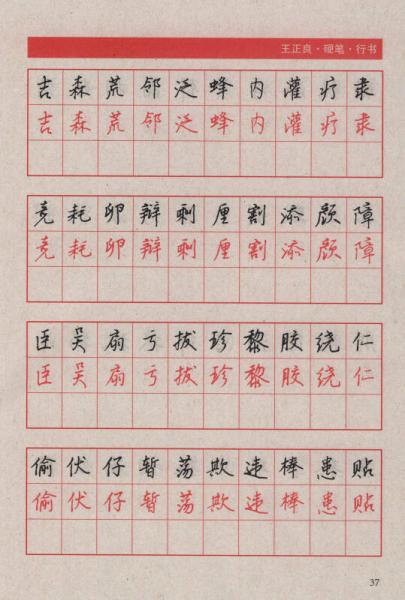 王正良·硬笔·行书
吉森荒邻泛蜂内灌疗隶
吉森荒邻泛蜂内灌疗隶
竟耗卵辩剩厘割添颜障
竟耗卵辩剩厘割添颜障
臣吴扇亏拔珍黎胶绕仁
臣吴扇亏拔珍黎胶绕仁
偷伏仔暂荡欺违棒患贴
偷伏仔暂荡欺违棒患贴
37